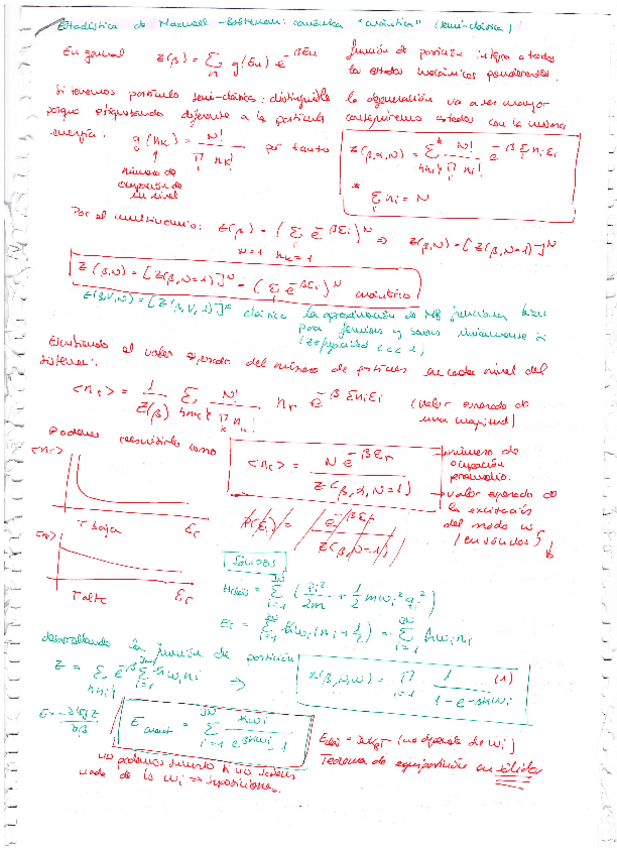 Estadística de Maxwell-Boltzmann: canónica "cuántica" (semi-clásica)
En general Z(β) = Σ_n g(En) e^{-βEn} función de partición integra a todos
los estados mecánicos
Si tenemos partículas semi-clásica: distinguible la degeneración va a ser mayor
porque etiquetando diferente a la partícula conseguiremos estados con la misma
energía. g(n_k) = N! / Π n_k! por tanto Z(β,α,N) = Σ*_{n_k} N! / Π n_i! e^{-β Σ n_i ε_i}
número de
ocupación de
un nivel
* Σ n_i = N
Por el multinomio: Z(β) = (Σ e^{-βε_i})^N ⇒ Z(β,N) = [Z(β,N=1)]^N
N=1 n_k=1
Z(β,N) = [Z(β,N=1)]^N = (Σ_i e^{-βε_i})^N cuántico
Z(β,V,N) = [Z(β,V,1)]^N clásico la aproximación de MB funciona bien
para fermiones y bosones únicamente si
<<< 1
el valor esperado del número de partículas en cada nivel del
sistema:
<n_r> = 1/Z(β) Σ_{n_k} N! / Π n_k! n_r e^{-β Σ n_i ε_i} (valor esperado de
una magnitud)
Podemos reescribirlo como
<n_r> = N e^{-βε_r} / Z(β,α,N=1)
→ número de
ocupación
promedio.
→ valor esperado de
la excitación
del modo ω
(en sólidos)
<n_r>
T baja ε_r
<n_r>
T alta ε_r
P(ε_i) = e^{-βε_r} / Z(β,N=1)
SÓLIDOS
= Σ_{i=1}^{3N} (p_i²/2m + 1/2 m ω_i² q_i²)
E_i = Σ_{i=1}^{3N} ħω_i (n_i + 1/2) = Σ_{i=1}^{3N} ħω_i n_i
desarrollando la función de partición
Z = Σ_{n_i} e^{-β Σ_{i=1}^{3N} ħω_i n_i} → Z(β,N,ω) = Π_{i=1}^{3N} 1 / (1 - e^{-βħω_i}) (1)
E = -∂ log Z / ∂β E_cuant = Σ_{i=1}^{3N} ħω_i / (e^{βħω_i} - 1)
E_clás = 3NkT (no depende de ω_i)
Teorema de equipartición en sólidos
no podemos si no sabemos
nada de la ω_i ⇒ suposiciones.